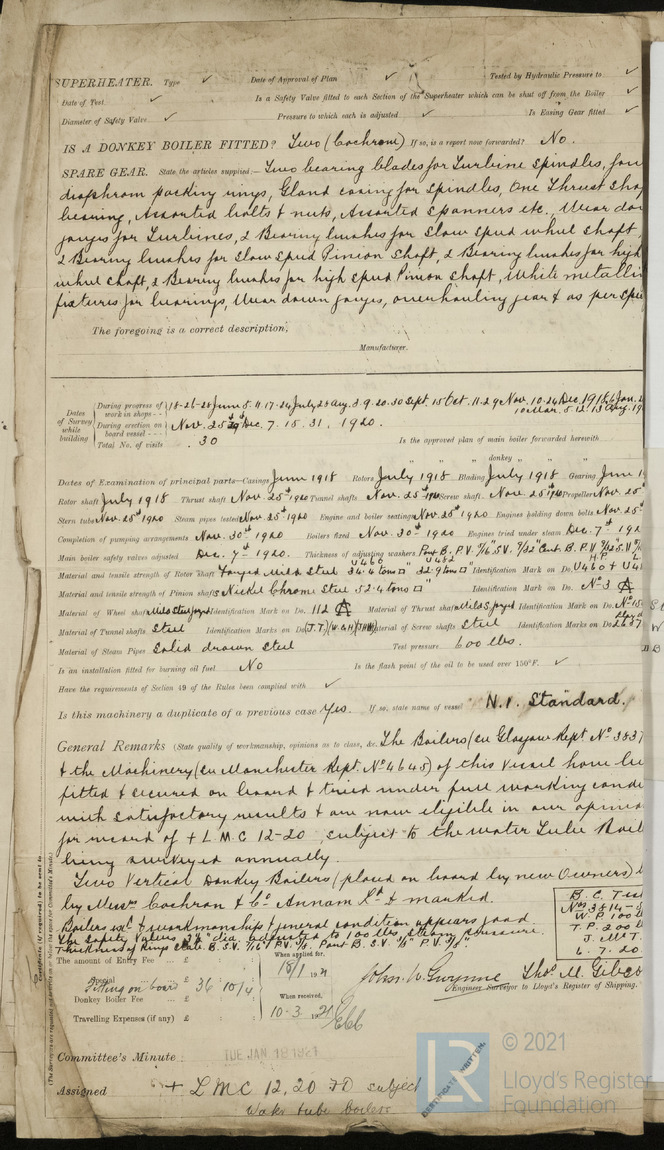 SUPERHEATER. Type ✓ Date of Approval of Plan ✓ Tested by Hydraulic Pressure to ✓
Date of Test ✓ Is a Safety Valve fitted to each Section of the Superheater which can be shut off from the Boiler ✓
Diameter of Safety Valve ✓ Pressure to which each is adjusted ✓ Is Easing Gear fitted ✓
IS A DONKEY BOILER FITTED? Two (Cochrane) If so, is a report now forwarded? No.
SPARE GEAR. State the articles supplied:— Two bearing blades for Turbine Spindles, four
diaphrom packing rings, Gland casing for spindles, One Thrust
bearing, Assorted bolts & nuts, Assorted spanners etc., Wear down
gauges for Turbines, 2 Bearing bushes for slow speed wheel shaft,
2 Bearing bushes for slow speed Pinion shaft, 2 Bearing bushes for high
wheel shaft, 2 Bearing bushes for high speed Pinion shaft, White
fixtures for bearings, Wear down gauges, overhauling gear & as per
The foregoing is a correct description,
Manufacturer.
Dates of Survey while building
During progress of work in shops - - 18-26-28 June 5. 11. 17. 24 July 28 Aug. 3. 9. 20. 30 Sept. 15 Oct. 11. 29 Nov. 10. 24 Dec. 1918, 6 Jan.
10 Mar. 5. 12. 13 Aug. 19
During erection on board vessel - - - Nov. 25 Dec. 7. 15. 31. 1920.
Total No. of visits 30 Is the approved plan of main boiler forwarded herewith
" " " donkey " " "
Dates of Examination of principal parts—Casings June 1918 Rotors July 1918 Blading July 1918 Gearing June
Rotor shaft July 1918 Thrust shaft Nov. 25th 1920 Tunnel shafts Nov. 25th 1920 Screw shaft Nov. 25th 1920 Propeller Nov. 25th
Stern tube Nov. 25th 1920 Steam pipes tested Nov. 25th 1920 Engine and boiler seatings Nov. 25th 1920 Engines holding down bolts Nov. 25th
Completion of pumping arrangements Nov. 30th 1920 Boilers fixed Nov. 30th 1920 Engines tried under steam Dec. 7th 192
Main boiler safety valves adjusted Dec. 7th 1920. Thickness of adjusting washers Port B. P.V. 7/16" S.V. 7/32" Cent. B. P.V.
Material and tensile strength of Rotor shaft Forged Mild Steel 34.4 tons □" 32.9 tons □" Identification Mark on Do. U460 &
Material and tensile strength of Pinion shaft Nickel Chrome Steel 52.4 tons □" Identification Mark on Do. No 3
Material of Wheel shaft Mild Steel forged Identification Mark on Do. 112 Material of Thrust shaft Mild S. forged Identification Mark on Do. No 15
Material of Tunnel shafts Steel Identification Marks on Do. Material of Screw shafts Steel Identification Marks on Do. 2637
Material of Steam Pipes Solid drawn Steel Test pressure 600 lbs.
Is an installation fitted for burning oil fuel No Is the flash point of the oil to be used over 150°F. ✓
Have the requirements of Section 49 of the Rules been complied with ✓
Is this machinery a duplicate of a previous case Yes. If so, state name of vessel N.1. Standard.
General Remarks (State quality of workmanship, opinions as to class, &c. The Boilers (see Glasgow Rept No 3837
& the Machinery (see Manchester Rept. No 4645) of this vessel have
fitted & secured on board & tried under full working
with satisfactory results & are now eligible in our opinion
for record of + L.M.C 12-20 subject to the water Tube
being surveyed annually.
Two Vertical Donkey Boilers (placed on board by new Owners)
by Messrs Cochran & Co Annan Ld & marked.
Boilers & workmanship & general condition appears good.
The Safety Valves dia. adjusted to 100 lbs. steam pressure.
Thickness of Rings
B. C. Test
Nos 3814-
W.P. 100 lb
T.P. 200 lb
J. M. T.
6. 7. 20
The amount of Entry Fee ... £ : : When applied for,
Special ... £ 18/1 1921
Fitting on board 36 : 10 / 4
Donkey Boiler Fee ... £ : : When received,
Travelling Expenses (if any) £ : : 10. 3. 1921
John W. Gwynne Thos. M.
Engineer Surveyor to Lloyd's Register of Shipping.
Committee's Minute TUE JAN 18 1921
Assigned + LMC 12, 20 subject
Water tube boilers
CERTIFICATE WRITTEN.
Certificate (if required) to be sent to
(The Surveyors are requested not to write on or below the space for Committee's Minute.)
LR
© 2021
Lloyd's Register
Foundation